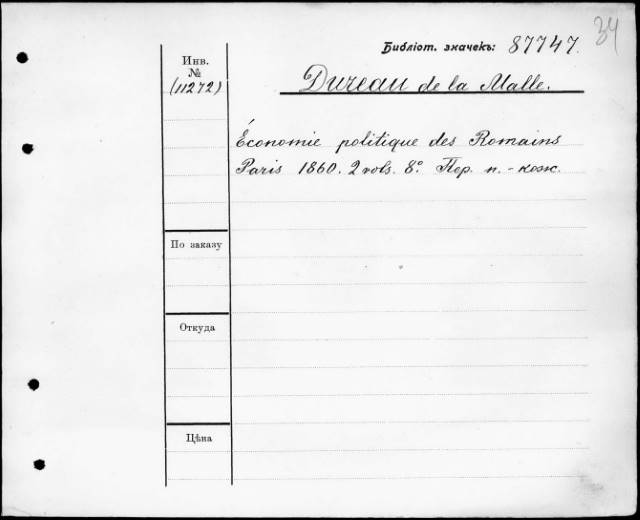 34
Библіот. значекъ: 87747.
Инв.
№
(11272)
Dureau de la Malle.
Économie politique des Romains
Paris 1860. 2 vols. 8°. Пер. п.-кож.
По заказу
Откуда
Цѣна